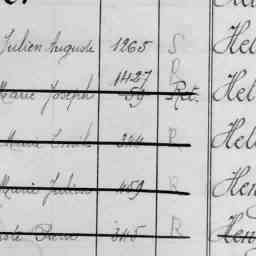 Julien Auguste 1265 S Hel
1427 R
Marie Joseph 59 Ret. Hel
Marie Emile 344 R Hel
Marie Julien 459 R Hen
Pierre 345 R Henr